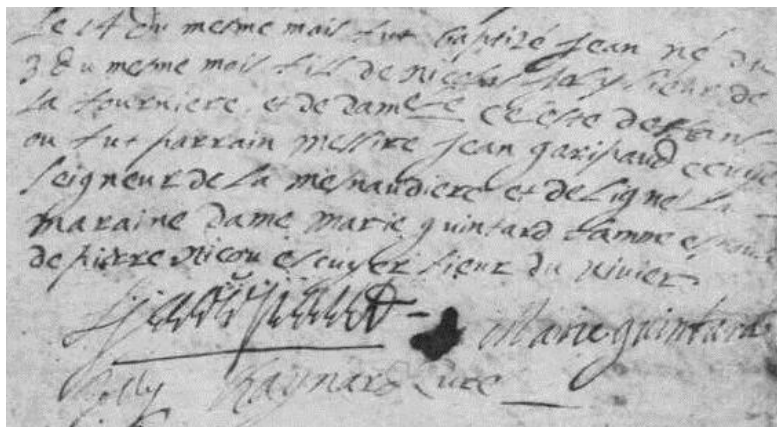 Le 14 du mesme mois fut baptizé jean né du
3 du mesme mois fils de nicolas sieur de
La tourniere et de dame celeste de
ou fut parrain messire jean garipaud ecuye
seigneur de La mesnaudiere et de Ligne La
maraine dame marie guintard famme espouse
de pierre Nicou escuyer sieur du vivier
Marie guintard
Raynard Curé